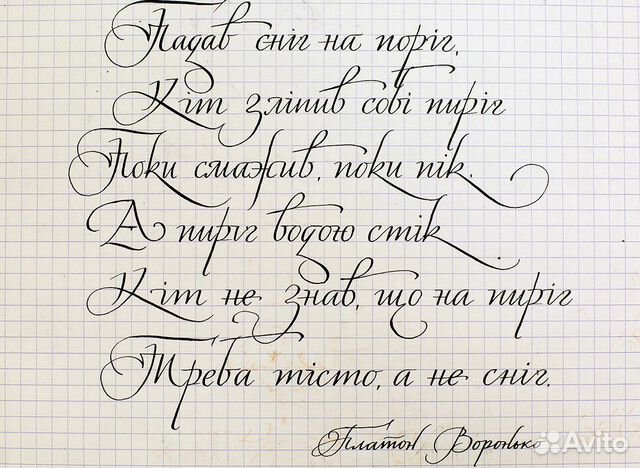 Падав сніг на поріг,
Кіт зліпив собі пиріг
Поки смажив, поки пік.
А пиріг водою стік.
Кіт не знав, що на пиріг
Треба тісто, а не сніг.
Платон Воронько
Avito